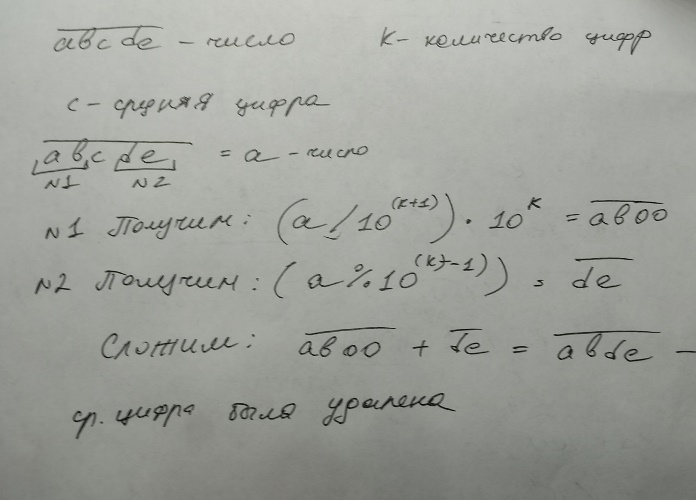 abcde – число К – количество цифр
с – средняя цифра
abcde = a – число
N1 N2
N1 Получим: (a / 10^(k+1)) · 10^k = ab00
N2 Получим: (a % 10^(k-1)) = de
Сложим: ab00 + de = abde –
ср. цифра была удалена